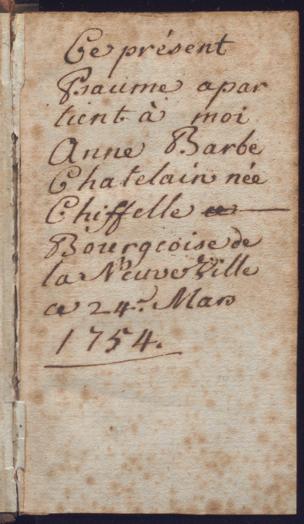 Ce présent
Psaume apar
tient à moi
Anne Barbe
Chatelain née
Chiffelle
Bourgeoise de
la Neuve Ville
ce 24e. Mars
1754.